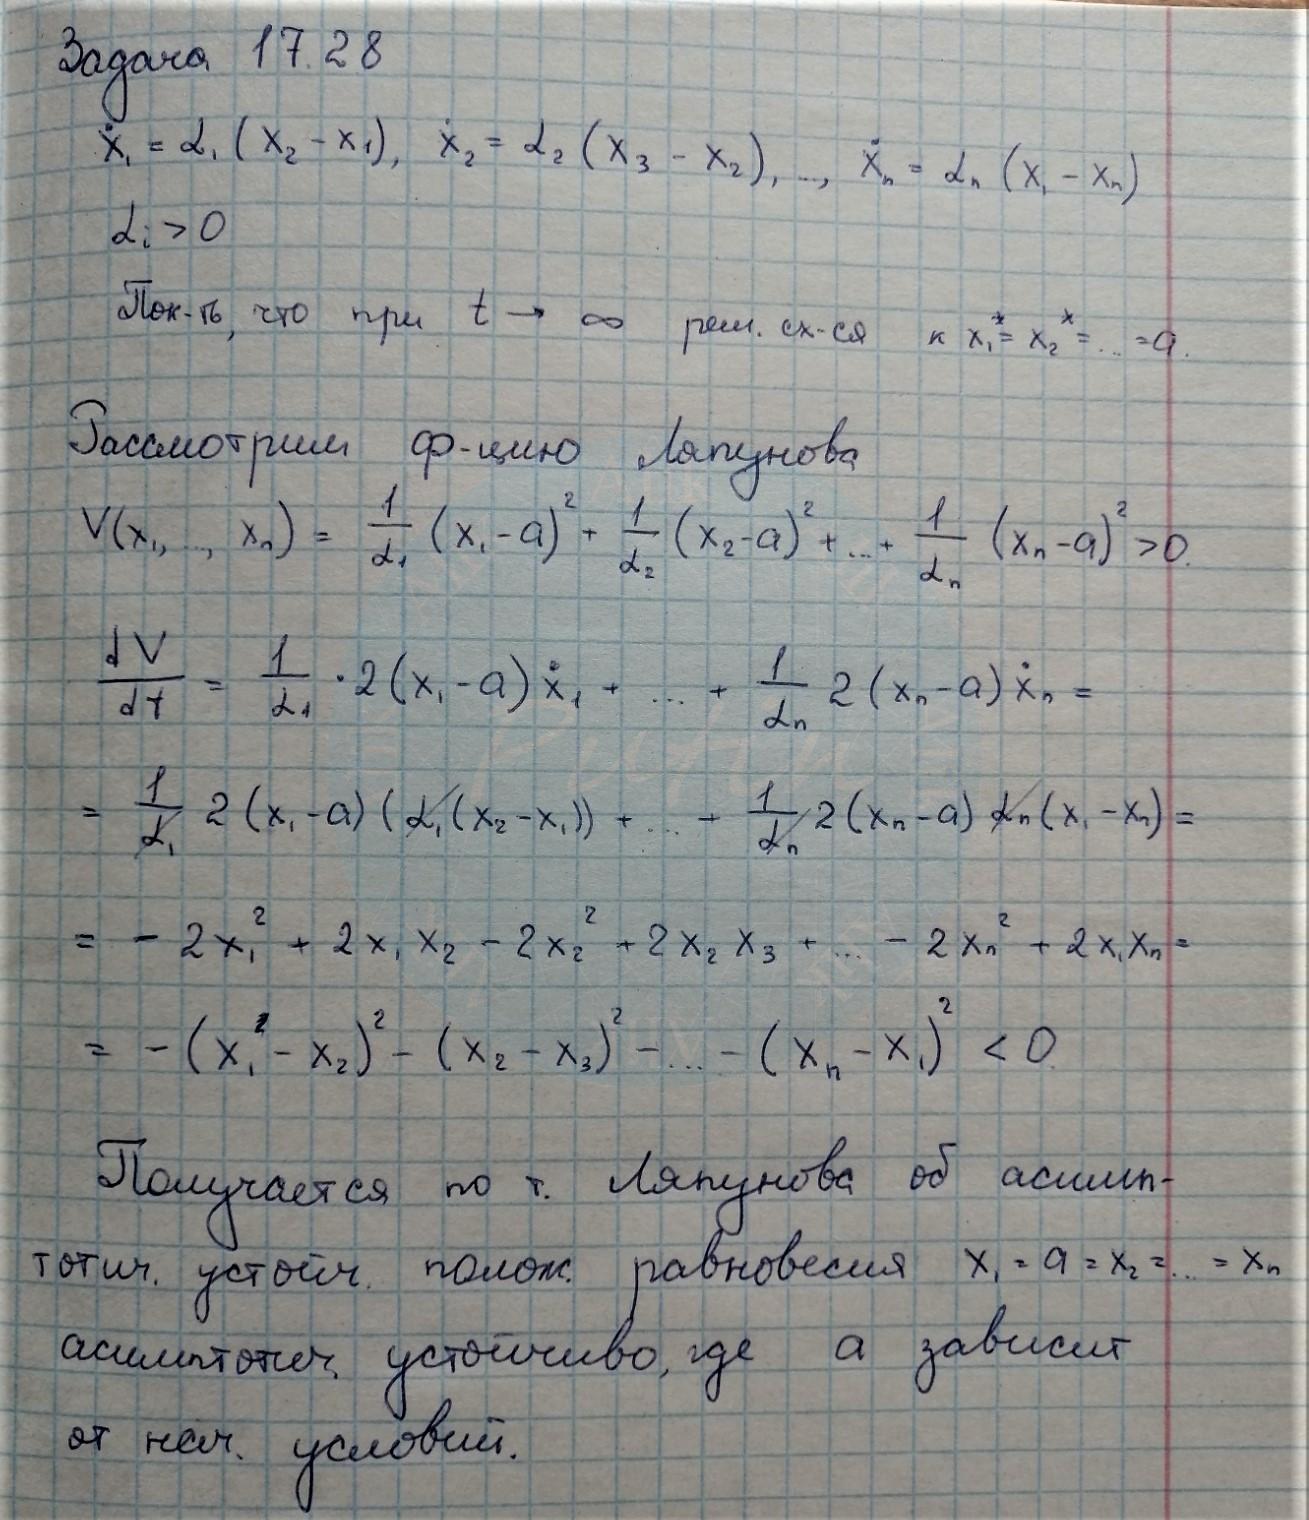 Задача 17.28
ẋ₁ = α₁(x₂ - x₁), ẋ₂ = α₂(x₃ - x₂), ..., ẋₙ = αₙ(x₁ - xₙ)
αᵢ > 0
Пок-ть, что при t → ∞ реш. сх-ся к x₁* = x₂* = ... = a.
Рассмотрим ф-цию Ляпунова
V(x₁, ..., xₙ) = 1/α₁ (x₁ - a)² + 1/α₂ (x₂ - a)² + ... + 1/αₙ (xₙ - a)² > 0.
dV/dt = 1/α₁ · 2(x₁ - a)ẋ₁ + ... + 1/αₙ 2(xₙ - a)ẋₙ =
= 1/α₁ 2(x₁ - a)(α₁(x₂ - x₁)) + ... + 1/αₙ 2(xₙ - a)αₙ(x₁ - xₙ) =
= - 2x₁² + 2x₁x₂ - 2x₂² + 2x₂x₃ + ... - 2xₙ² + 2x₁xₙ =
= - (x₁ - x₂)² - (x₂ - x₃)² - ... - (xₙ - x₁)² < 0.
Получается по т. Ляпунова об асимп-
тотич. устойч. полож. равновесия x₁ = a = x₂ = ... = xₙ
асимптотич. устойчиво, где a зависит
от нач. условий.